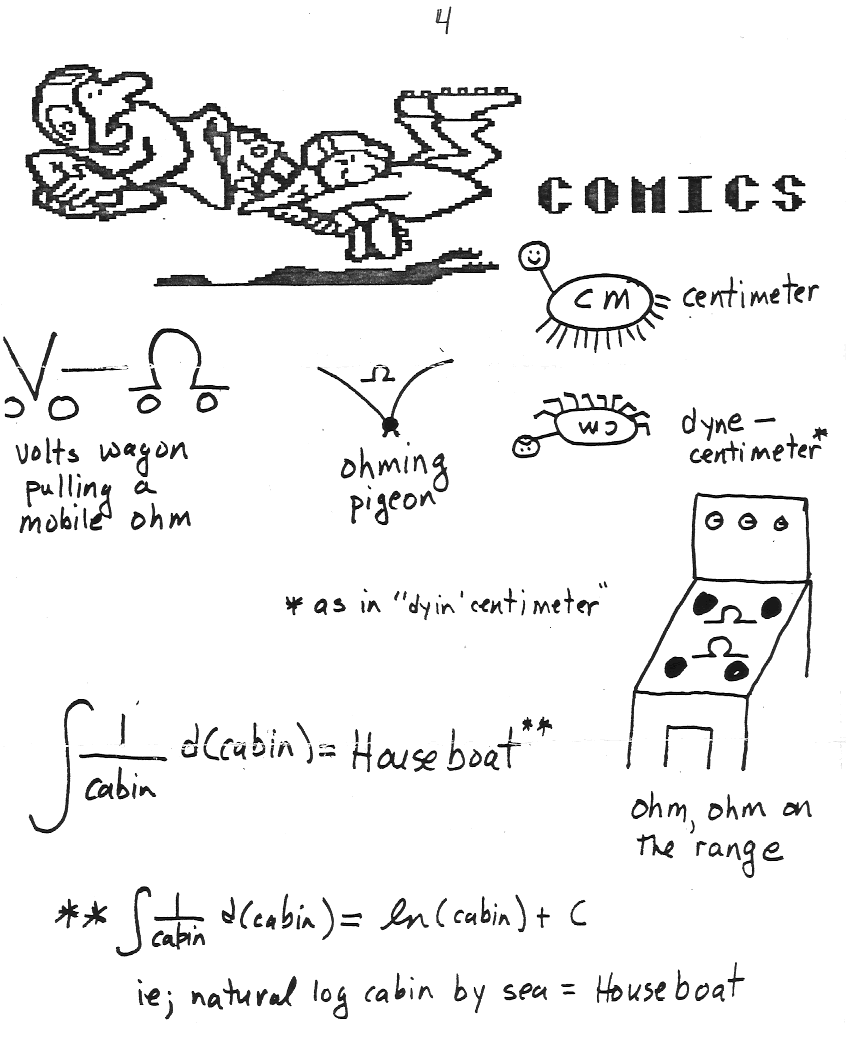 4
COMICS
cm
centimeter
V — Ω
volts wagon
pulling a
mobile ohm
Ω
ohming
pigeon
cm
dyne –
centimeter*
* as in "dyin' centimeter"
Ω
Ω
ohm, ohm on
the range
∫ 1/cabin d(cabin) = Houseboat**
** ∫ 1/cabin d(cabin) = ln(cabin) + C
ie; natural log cabin by sea = Houseboat